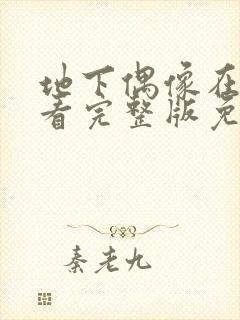 地下偶像在
看完整版免
秦老九